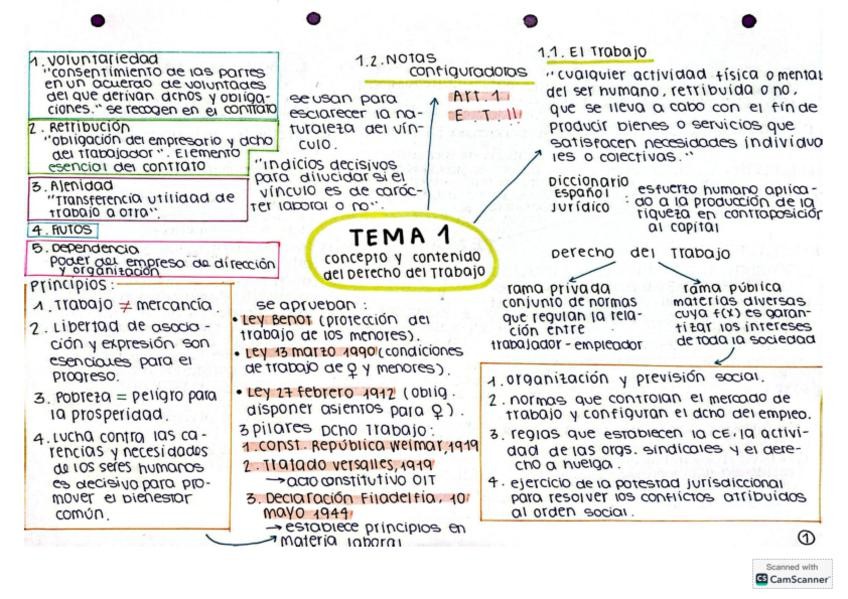 TEMA 1
concepto y contenido
del Derecho del Trabajo
1.1. El Trabajo
"cualquier actividad física o mental
del ser humano, retribuida o no,
que se lleva a cabo con el fin de
producir bienes o servicios que
satisfacen necesidades individua
les o colectivas."
Diccionario
Español
Jurídico
: esfuerzo humano aplica-
do a la producción de la
riqueza en contraposición
al capital
Derecho del Trabajo
rama privada
conjunto de normas
que regulan la rela-
ción entre
trabajador-empleador
rama pública
materias diversas
cuya f(x) es garan-
tizar los intereses
de toda la sociedad
1. organización y previsión social.
2. normas que controlan el mercado de
trabajo y configuran el dcho del empleo.
3. reglas que establecen la CE, la activi-
dad de las orgs. sindicales y el dere-
cho a huelga.
4. ejercicio de la potestad jurisdiccional
para resolver los conflictos atribuidos
al orden social.
1.2. Notas
configuradoras
Art. 1
E.T.!!
se usan para
esclarecer la na-
turaleza del vín-
culo.
"Indicios decisivos
para dilucidar si el
vínculo es de carác-
ter laboral o no".
1. Voluntariedad
"consentimiento de las partes
en un acuerdo de voluntades
del que derivan dchos y obliga-
ciones." se recogen en el contrato
2. Retribución
"obligación del empresario y dcho
del trabajador". Elemento
esencial del contrato
3. Ajenidad
"Transferencia utilidad de
trabajo a otra".
4. Frutos
5. Dependencia
Poder del empreso de dirección
y organización
se aprueban:
• Ley Benot (protección del
trabajo de los menores).
• Ley 13 marzo 1990 (condiciones
de trabajo de ♀ y menores).
• Ley 27 febrero 1912 (oblig.
disponer asientos para ♀).
3 pilares Dcho Trabajo:
1. Const. República Weimar, 1919
2. Tratado Versalles, 1919
→ acto constitutivo OIT
3. Declaración Filadelfia, 10
mayo 1944
→ establece principios en
materia laboral
Principios:
1. Trabajo ≠ mercancía.
2. Libertad de asocia-
ción y expresión son
esenciales para el
progreso.
3. Pobreza = peligro para
la prosperidad.
4. Lucha contra las ca-
rencias y necesidades
de los seres humanos
es decisivo para pro-
mover el bienestar
común.
1
Scanned with
CS CamScanner